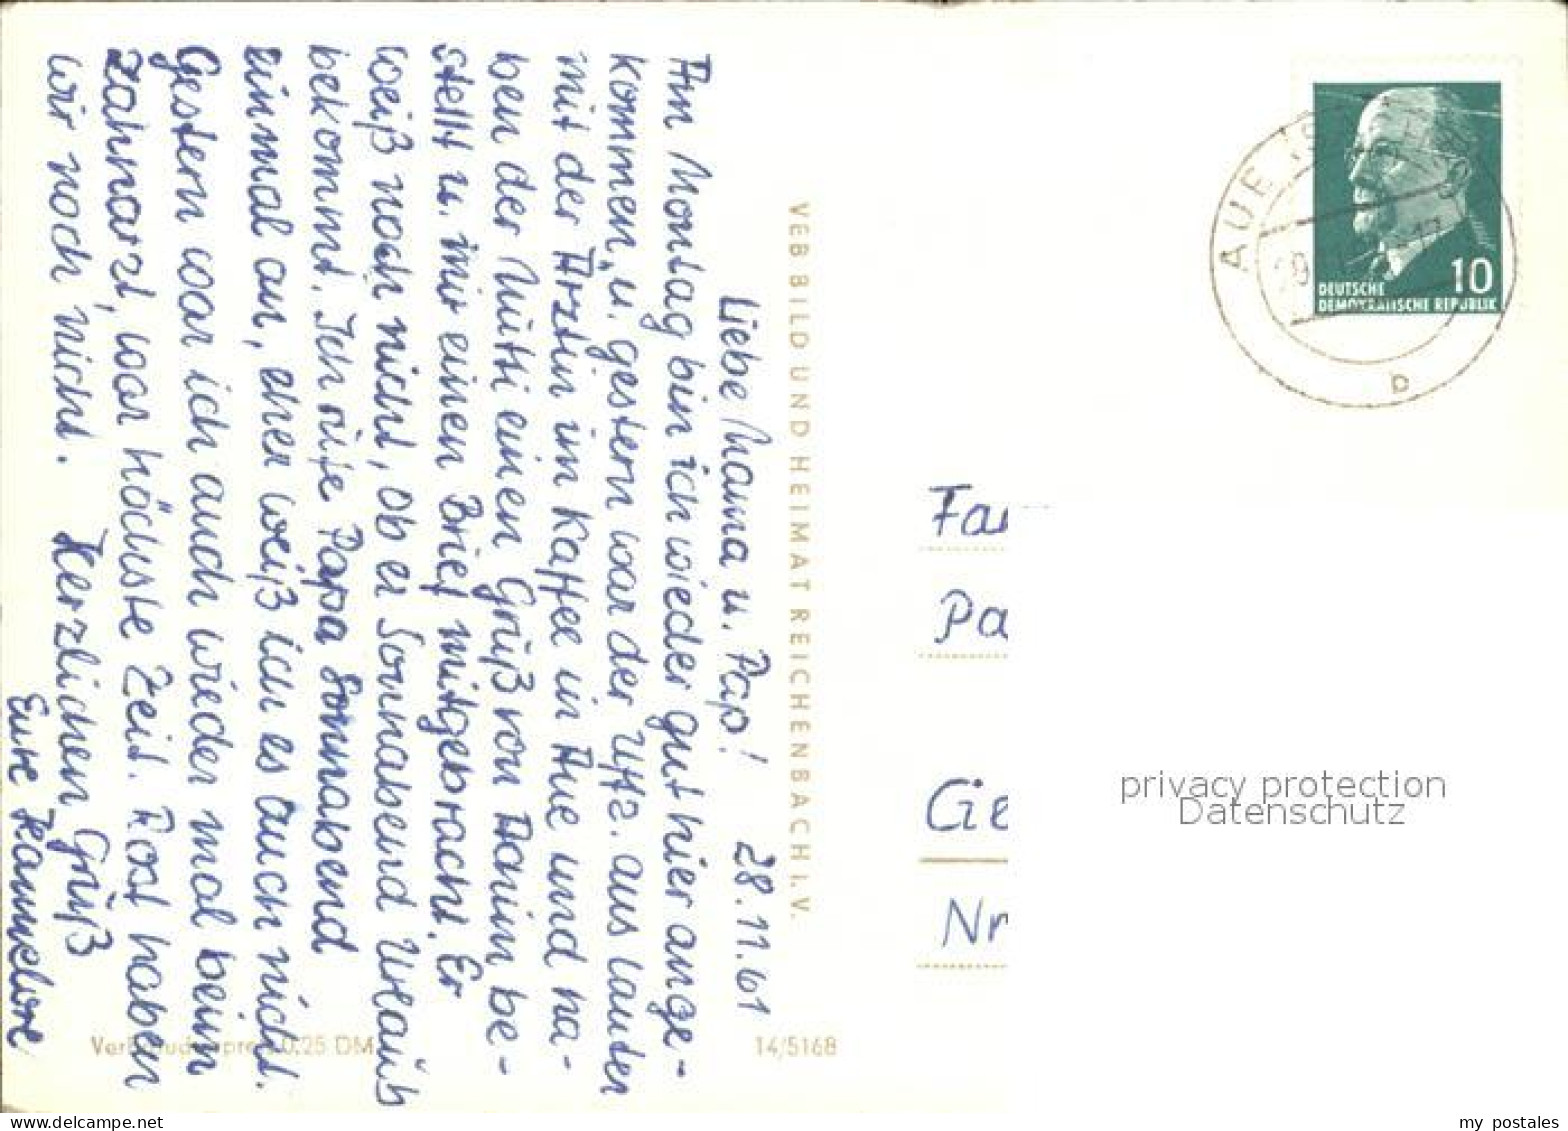 28.11.61
Liebe Mama u. Pap!
Am Montag bin ich wieder gut hier ange-
kommen, u. gestern war der Uffz. aus lauter
mit der Ärztin im Kaffee in Aue und ha-
ben der Mutti einen Gruß von be-
stellt u. mir einen Brief mitgebracht. Er
weiß noch nicht, ob er Sonnabend Urlaub
bekommt. Ich rufe Papa Sonnabend
einmal an, eher weiß ich es auch nicht.
Gestern war ich auch wieder mal beim
Zahnarzt, war höchste Zeit. Post haben
wir noch nicht. Herzlichen Gruß
Eure Hannelore
VEB BILD UND HEIMAT REICHENBACH I. V.
Verbraucherpreis 0,25 DM
14/5168
AUE
b
10
DEUTSCHE
DEMOKRATISCHE REPUBLIK
Fa
Pa
Ge
Nr
privacy protection
Datenschutz
my postales